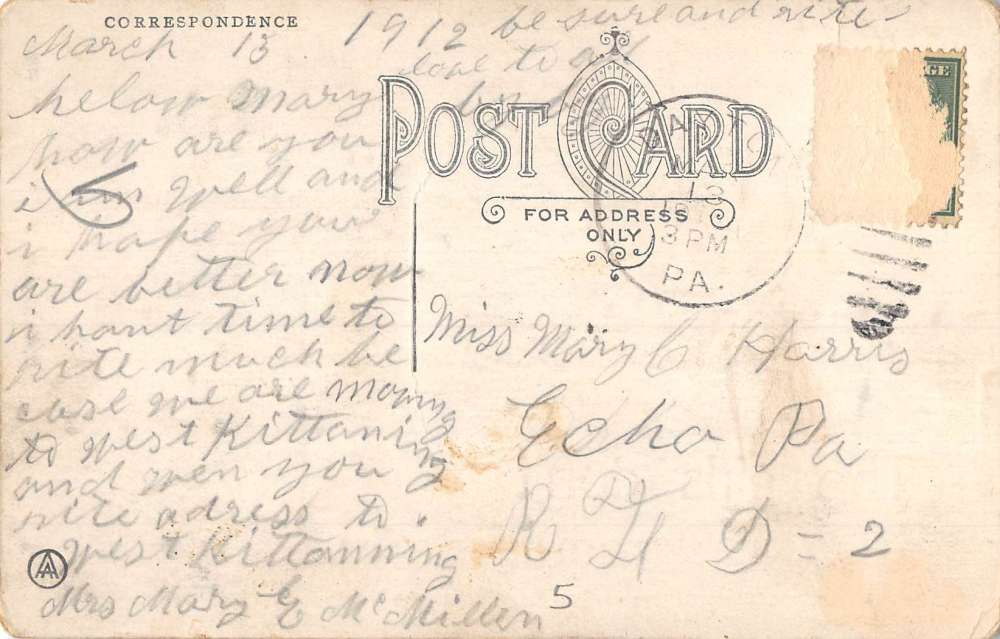 CORRESPONDENCE
March 13 1912
helow Mary
how are you
i am well and
i hope your
are better now
i hant time to
rite much be
case we are moving
to west Kittaning
and wen you
rite adress to
west Kittanning
Mrs Mary E McMillen
be sure and rite
love to all
POST CARD
FOR ADDRESS
ONLY
13
3 PM
PA.
GE
Miss Mary C Harris
Echo Pa
R F D = 2
5
AA